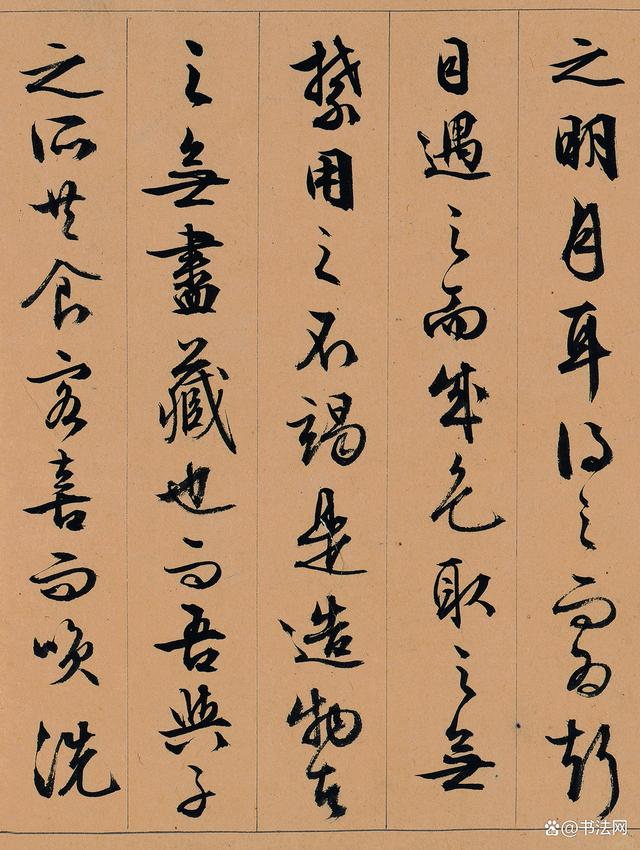 之明月耳得之而為聲
目遇之而成色取之無
禁用之不竭是造物者
之無盡藏也而吾與子
之所共食客喜而咲洗
@书法网